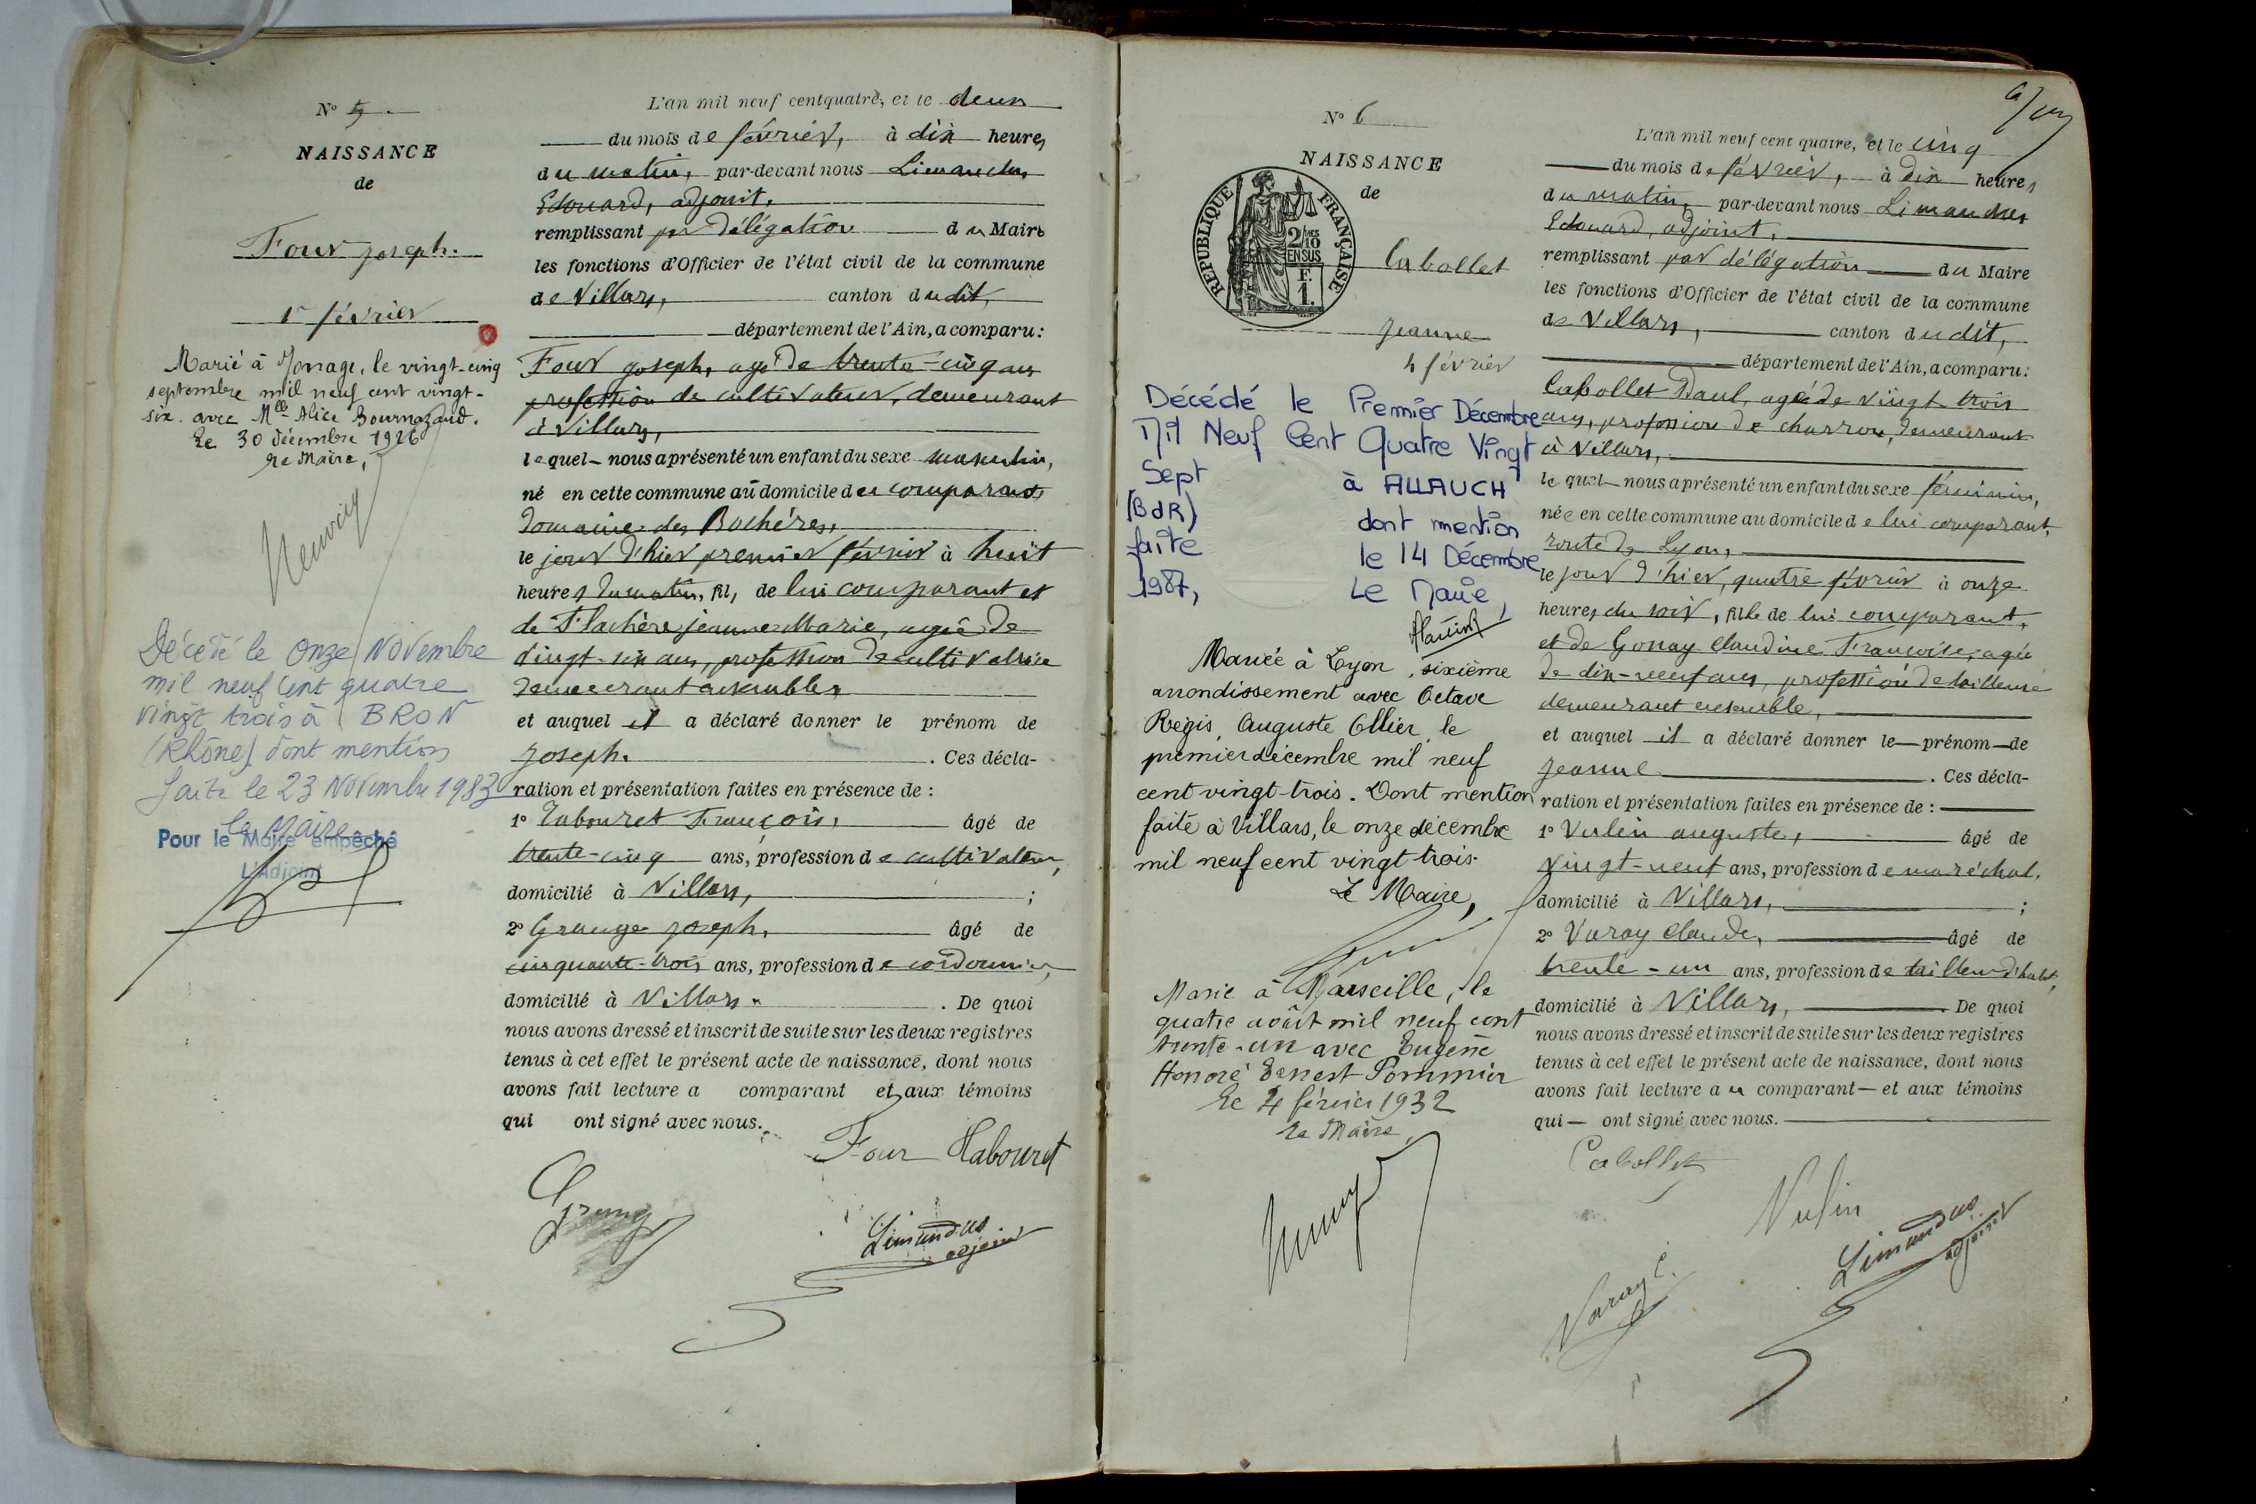 N° 5
NAISSANCE
de
Four Joseph.
1r février
Marié à Jonage, le vingt-cinq
septembre mil neuf cent vingt-
six avec Mlle Alice Bournazaud.
Le 30 décembre 1926
Le Maire,
Décédé le onze Novembre
mil neuf cent quatre
vingt trois à BRON
(Rhône) dont mention
faite le 23 Novembre 1983
Le Maire
Pour le Maire empêché
L'Adjoint
L'an mil neuf cent quatre, et le deux
du mois de février, à dix heures
du matin, par-devant nous Limandas
Edouard, adjoint,
remplissant par délégation du Maire
les fonctions d'Officier de l'état civil de la commune
de Villars, canton dudit,
département de l'Ain, a comparu :
Four Joseph, agé de trente-cinq ans
profession de cultivateur, demeurant
à Villars,
lequel nous a présenté un enfant du sexe masculin,
né en cette commune au domicile du comparant
domaine des Bochères,
le jour d'hier premier février à huit
heures du matin, fils de lui comparant et
de Flachère Jeanne Marie, agée de
vingt-six ans, profession de cultivatrice
demeurant ensemble,
et auquel il a déclaré donner le prénom de
Joseph. . Ces décla-
ration et présentation faites en présence de :
1° Tabouret François, âgé de
trente-cinq ans, profession de cultivateur,
domicilié à Villars, ;
2° Grange Joseph, âgé de
cinquante-trois ans, profession de cordonnier,
domicilié à Villars. . De quoi
nous avons dressé et inscrit de suite sur les deux registres
tenus à cet effet le présent acte de naissance, dont nous
avons fait lecture a comparant et aux témoins
qui ont signé avec nous.
Four Tabouret
Grange
Limandas
adjoint
N° 6
NAISSANCE
de
REPUBLIQUE FRANÇAISE
2/10 MES
EN SUS
F.
1.
Cabollet
Jeanne
4 février
Décédé le Premier Décembre
Mil Neuf Cent Quatre Vingt
Sept à ALLAUCH
(BdR) dont mention
faite le 14 Décembre
1987, Le Maire,
Mariée à Lyon, sixième
arrondissement avec Octave
Régis, Auguste Ollier, le
premier décembre mil neuf
cent vingt-trois. Dont mention
faite à Villars, le onze décembre
mil neuf cent vingt-trois.
Le Maire,
Marie à Marseille, le
quatre août mil neuf cent
trente-un avec Eugène
Honoré Ernest Pommier
Le 4 février 1932
Le Maire,
L'an mil neuf cent quatre, et le cinq
du mois de février, à dix heures
du matin, par-devant nous Limandas
Edouard, adjoint,
remplissant par délégation du Maire
les fonctions d'Officier de l'état civil de la commune
de Villars, canton dudit,
département de l'Ain, a comparu :
Cabollet Paul, agé de vingt trois
ans, profession de charron, demeurant
à Villars,
lequel nous a présenté un enfant du sexe féminin,
née en cette commune au domicile de lui comparant,
route de Lyon,
le jour d'hier, quatre février à onze
heures du soir, fille de lui comparant,
et de Gonay Claudine Françoise, agée
de dix-neuf ans, profession de tailleuse
demeurant ensemble,
et auquel il a déclaré donner le prénom de
Jeanne . Ces décla-
ration et présentation faites en présence de :
1° Vulin auguste, âgé de
vingt-neuf ans, profession de maréchal,
domicilié à Villars, ;
2° Varay Claude, âgé de
trente-un ans, profession de tailleur d'habit,
domicilié à Villars, . De quoi
nous avons dressé et inscrit de suite sur les deux registres
tenus à cet effet le présent acte de naissance, dont nous
avons fait lecture au comparant et aux témoins
qui ont signé avec nous.
Cabollet
Vulin
Varay C.
Limandas
adjoint